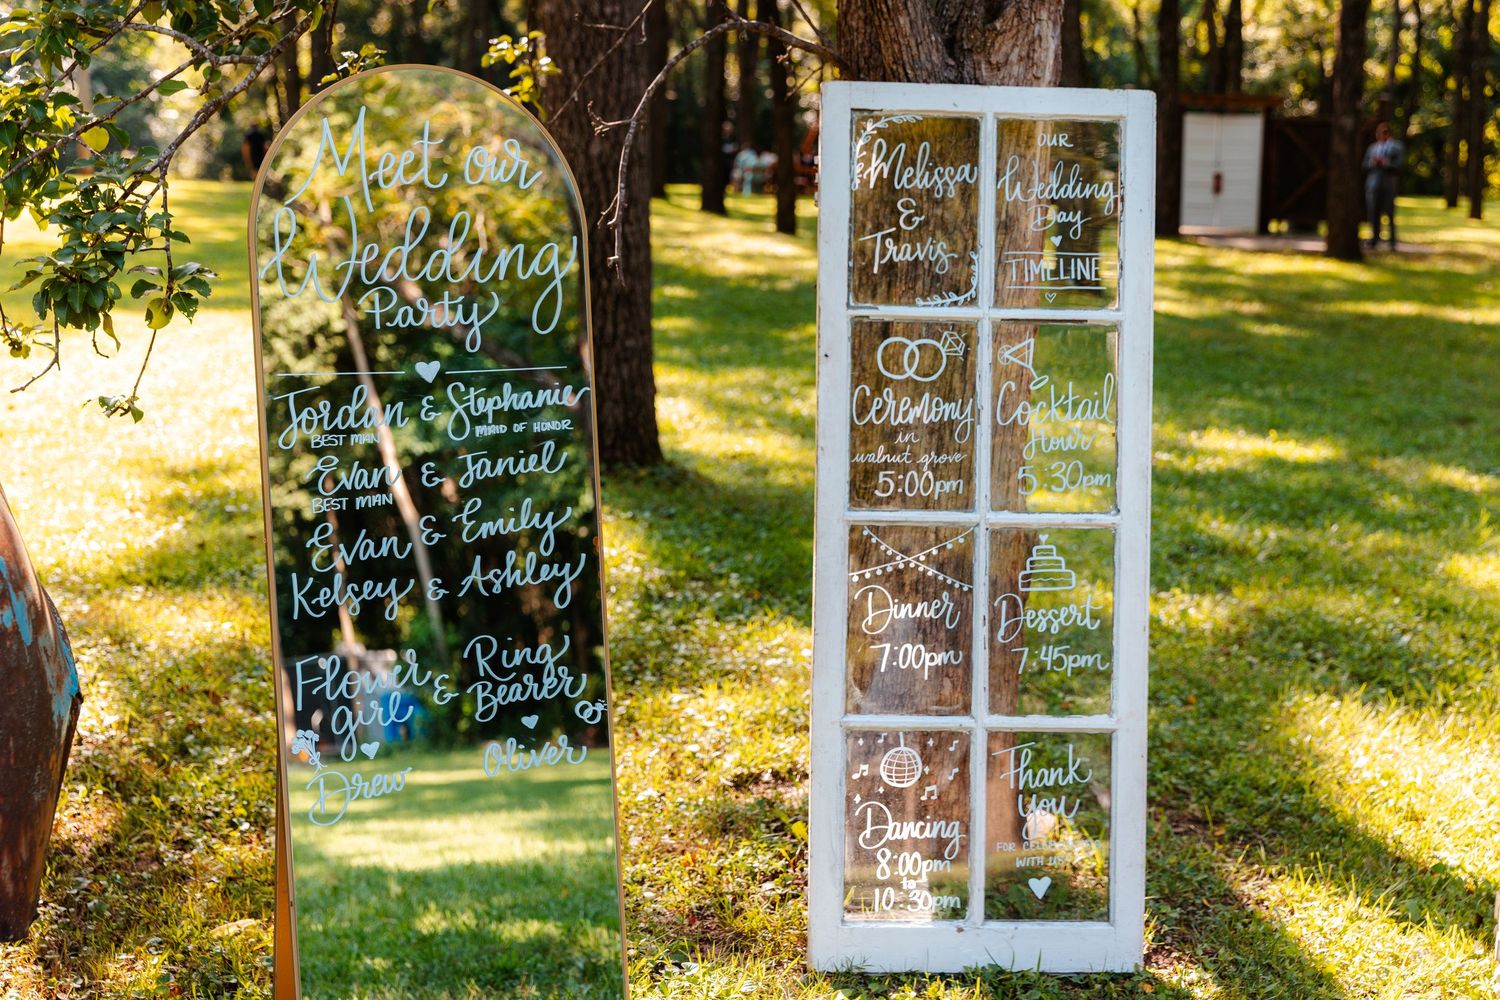 Meet our
Wedding
Party
Jordan & Stephanie
BEST MAN MAID OF HONOR
Evan & Janiel
BEST MAN
Evan & Emily
Kelsey & Ashley
Flower girl & Ring Bearer
Drew Oliver
Melissa
&
Travis
OUR
Wedding
Day
TIMELINE
Ceremony
in
walnut grove
5:00pm
Cocktail
Hour
5:30pm
Dinner
7:00pm
Dessert
7:45pm
Dancing
8:00pm
to
10:30pm
Thank
you
FOR CELEBRATING
WITH US